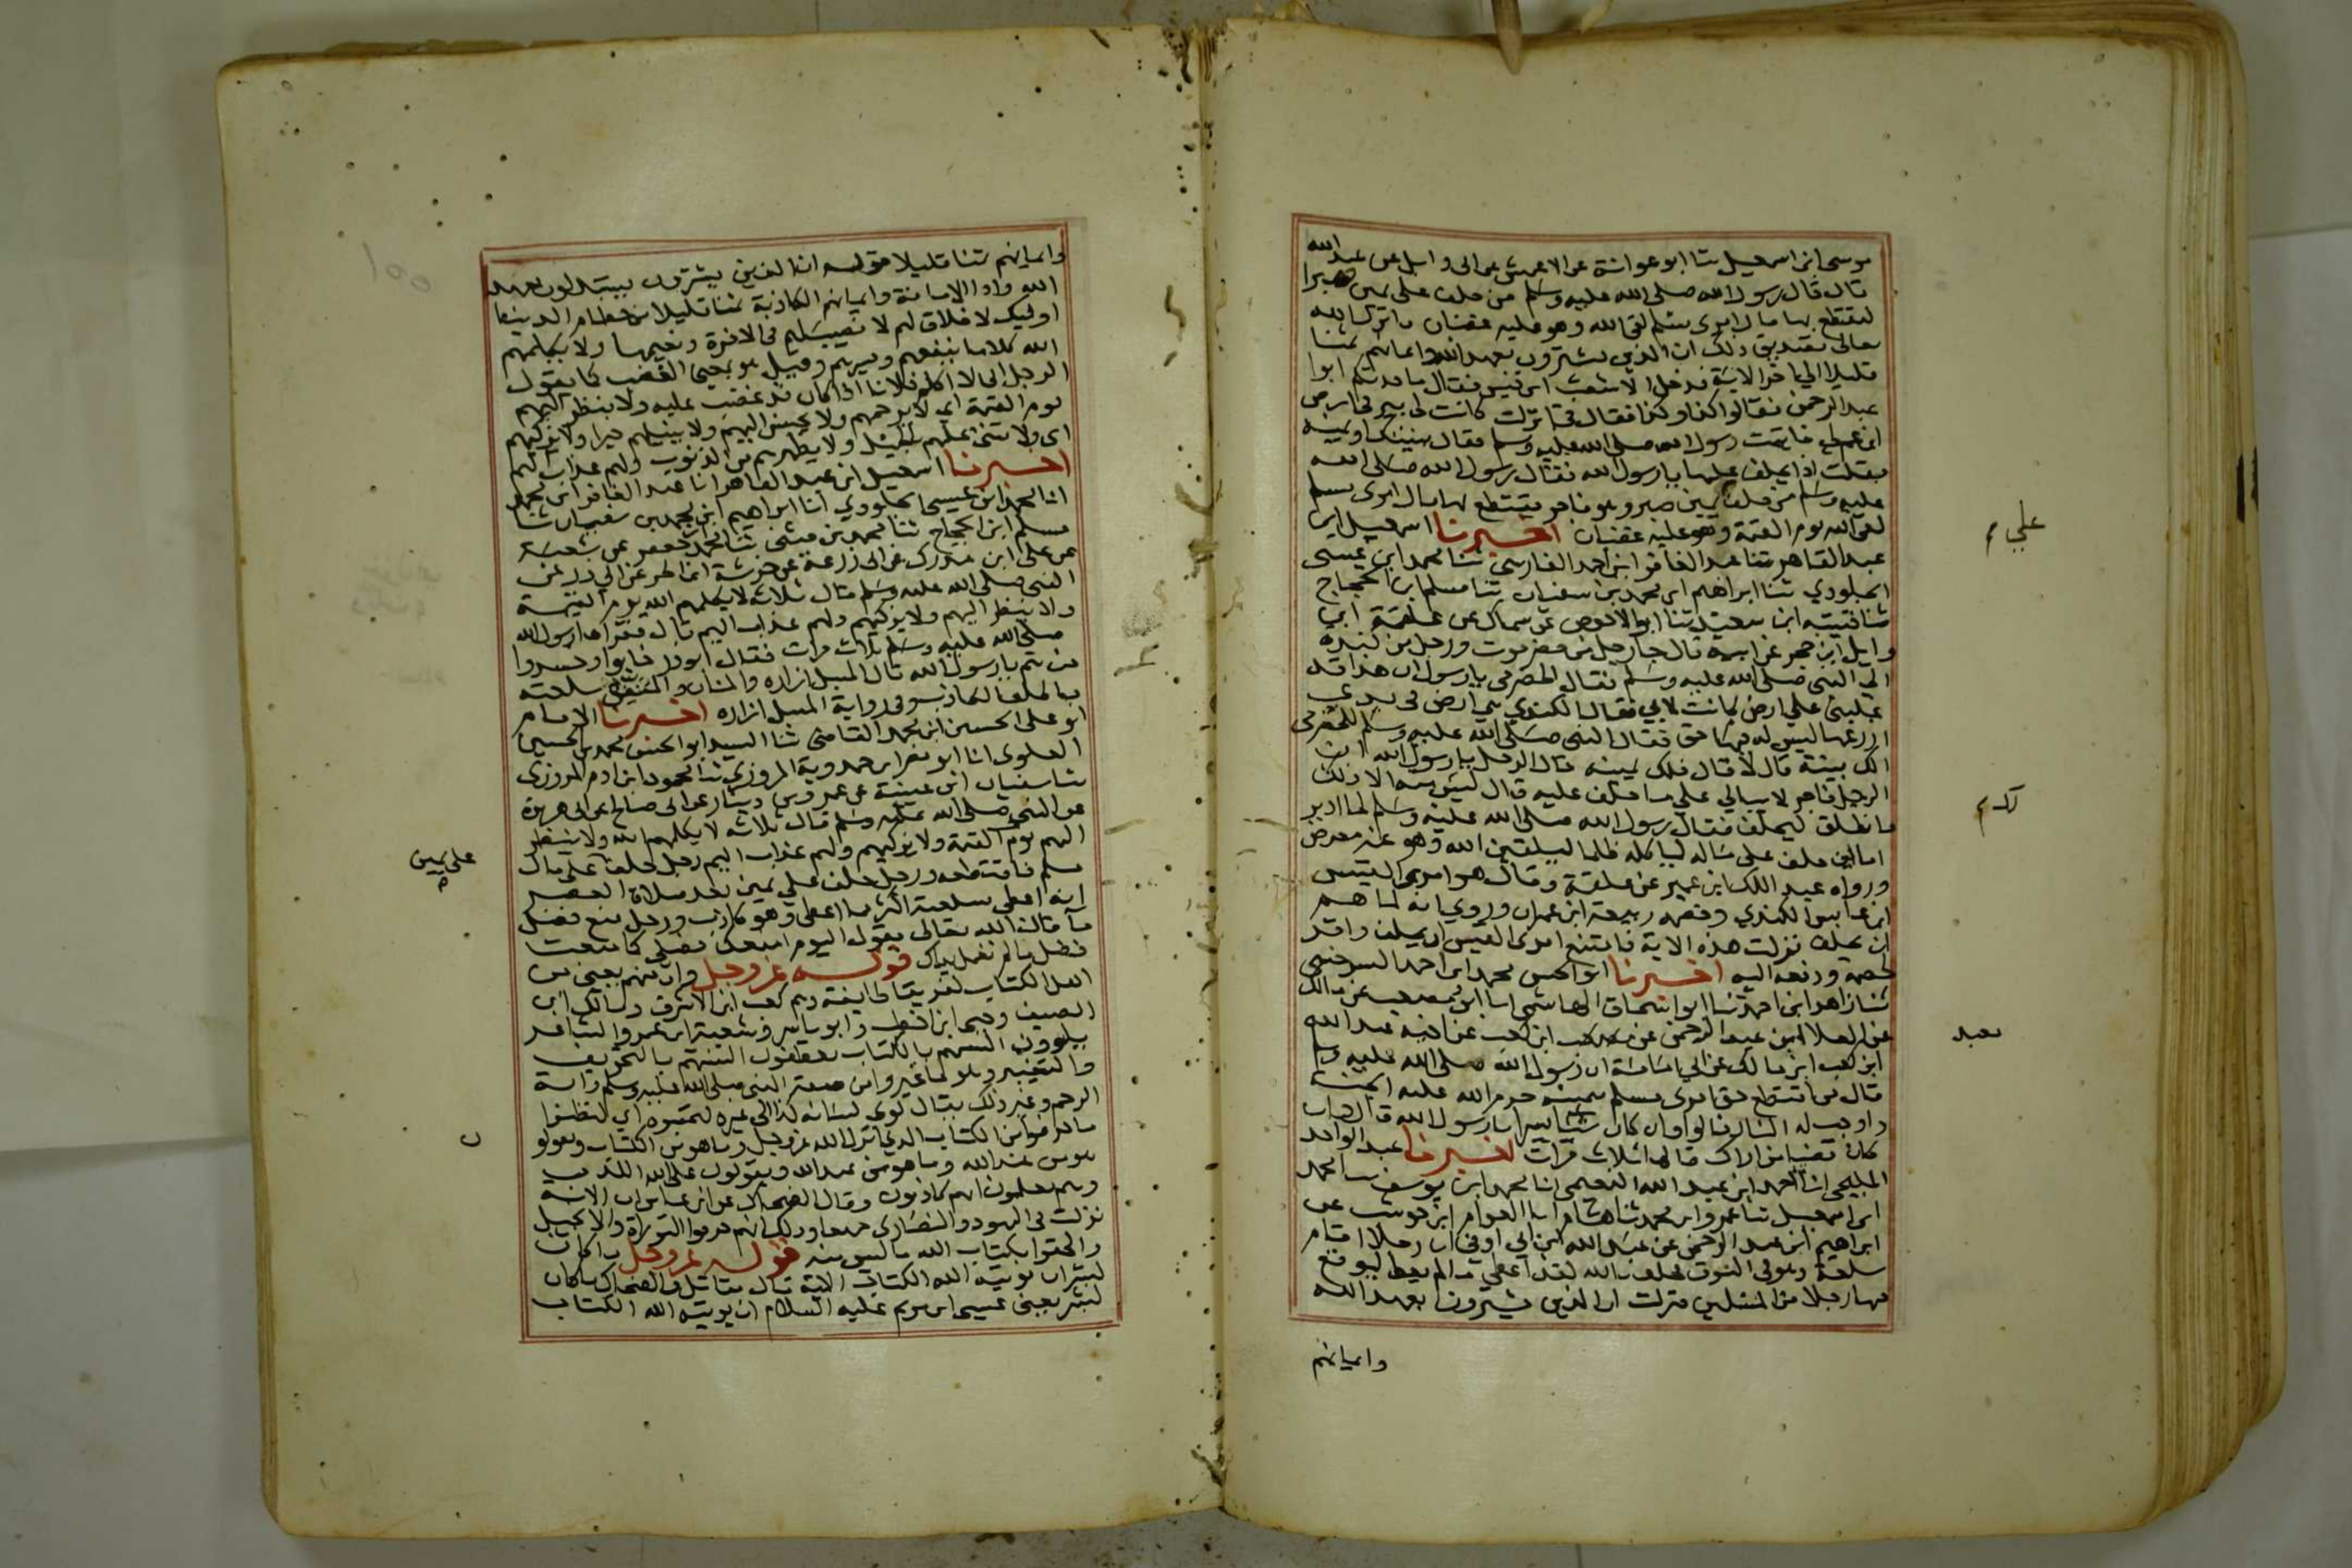 موسى ابن اسمعيل ثنا ابو عوانة عن الاعمش عن ابى وايل عن عبد الله
قال قال رسول الله صلى الله عليه وسلم من حلف على يمين صبرا
ليقتطع بها مال امرى مسلم لقى الله وهو عليه غضبان فانزل الله
تعالى تصديق ذلك ان الذين يشترون بعهد الله وايمانهم ثمنا
قليلا الي اخر الاية فدخل الاشعث ابن قيس فقال ما حدثكم ابوا
عبد الرحمن فقالوا كذا وكذا فقال فى نزلت كانت لى بير فى ارض
ابن عم لى فاتيت رسول الله صلى الله عليه وسلم فقال بينتك او يمينه
فقلت اذا يحلف عليها يا رسول الله فقال رسول الله صلى الله
عليه وسلم من حلف يمين صبر وهو فاجر يقتطع بها مال امرى مسلم
لقى الله يوم القيمة وهو عليه غضبان اخبرنا اسمعيل ابن
عبد القاهر ثنا عبد الغافر ابن احمد الفارسى ثنا محمد ابن عيسى
الجلودي ثنا ابراهيم ابن محمد بن سفيان ثنا مسلم ابن الحجاج
ثنا قتيبة ابن سعيد ثنا ابو الاحوص عن سماك عن علقمة ابن
وايل ابن حجر عن ابيه قال جا رجل من حضرموت ورجل من كندة
الى النبى صلى الله عليه وسلم فقال الحضرمى يا رسول ان هذا قد
غلبنى على ارض كانت لابي فقال الكندي هى ارض فى يدي
ازرعها ليس له فيها حق فقال النبى صلى الله عليه وسلم للحضرمى
الك بينة قال لا قال فلك يمينه قال الرجل يا رسول الله ان
الرجل فاجر لا يبالي علي ما حلف عليه قال ليس منه الا ذلك
فانطلق ليحلف فقال رسول الله صلى الله عليه وسلم لما ادبر
اما لين حلف على ماله لياكله ظلما ليلقين الله وهو عنه معرض
ورواه عبد الملك ابن عمير عن علقمة وقال هو امرى القيس
ابن عابس الكندي وخصمه ربيعة ابن عبدان وروي انه لما هم
ان يحلف نزلت هذه الاية فامتنع امرى القيس ان يحلف واقر
لخصمه ودفعه اليه اخبرنا ابو الحسن محمد ابن احمد السرخسى
ثنا زاهر ابن احمد ثنا ابو اسحاق الهاشمى انا ابو مصعب عن مالك
عن العلا ابن عبد الرحمن عن كعب عن اخيه عبد الله
ابن كعب ابن مالك عن ابي امامة ان رسول الله صلى الله عليه وسلم
قال من اقتطع حق امرى مسلم بيمينه حرم الله عليه الجنة
واوجب له النار قالوا وان كان شيا يسيرا يا رسول الله قال وان
كان قضيبا من اراك قالها ثلاث مرات اخبرنا عبد الواحد
المليحي انا احمد ابن عبد الله النعيمى انا محمد ابن يوسف ثنا محمد
ابن اسمعيل ثنا عمرو ابن محمد ثنا هشام انا العوام ابن حوشب عن
ابراهيم ابن عبد الرحمن عن عبد الله ابن ابي اوفى ان رجلا اقام
سلعة وهو فى السوق فحلف بالله لقد اعطى ما لم يعط ليوقع
فيها رجلا من المسلمين فنزلت ان الذين يشترون بعهد الله
وايمانهم
على م
لك م
معبد
وايمانهم ثمنا قليلا قوله ان الذين يشترون يستبدلون بعهد
الله وادا الامانة وايمانهم الكاذبة ثمنا قليلا من حطام الدنيا
اوليك لا خلاق لهم لا نصيب لهم فى الاخرة ونعيمها ولا يكلمهم
الله كلاما ينفعهم ويسرهم وقيل هو بمعنى الغضب كما يقول
الرجل انى لا اكلم فلانا اذا كان قد غضب عليه ولا ينظر اليهم
يوم القيمة اى لا يرحمهم ولا يحسن اليهم ولا ينيلهم خيرا ولا يزكيهم
اى ولا يثنى عليهم بالجميل ولا يطهرهم من الذنوب ولهم عذاب اليم
اخبرنا اسمعيل ابن عبد القاهر انا عبد الغافر ابن محمد
انا محمد ابن عيسى الجلودي انا ابراهيم ابن محمد بن سفيان ثنا
مسلم ابن الحجاج ثنا محمد بن مثنى ثنا محمد جعفر عن شعبة
عن على ابن مدرك عن ابى زرعة عن خرشة ابن الحر عن ابى ذر عن
النبى صلى الله عليه وسلم قال ثلاثة لا يكلمهم الله يوم القيمة
ولا ينظر اليهم ولا يزكيهم ولهم عذاب اليم قال فقراها رسول الله
صلى الله عليه وسلم ثلاث مرات فقال ابو ذر خابوا وخسروا
من هم يا رسول الله قال المسبل ازاره والمنان والمنفق سلعته
بالحلف الكاذب وفى رواية المسبل ازاره اخبرنا الامام
ابو على الحسين ابن محمد القاضى ثنا السيد ابو الحسن محمد بن الحسين
العلوى انا ابو نصر ابن حمدوية المروزي ثنا محمود ابن ادم المروزى
ثنا سفيان ابن عيينة عن عمرو بن دينار عن ابى صالح عن ابى هريرة
عن النبى صلى الله عليه وسلم قال ثلاثة لا يكلمهم الله ولا ينظر
اليهم يوم القيمة ولا يزكيهم ولهم عذاب اليم رجل حلف على مال
مسلم فاقتطعه ورجل حلف على يمين بعد صلاة العصر
انه اعطى بسلعته اكثر مما اعطى وهو كاذب ورجل منع فضل
ما قال الله تعالى يقول اليوم امنعك فضلى كما منعت
فضل ما لم تعمل يداك قوله عز وجل وان منهم يعنى من
اهل الكتاب لفريقا طايفة وهم كعب ابن الاشرف ومالك ابن
الصيف وحيى ابن اخطب وابو ياسر وشعبة ابن عمرو الشاعر
يلوون السنتهم بالكتاب يعطفون السنتهم بالتحريف
والتغيير وهو ما غيروا من صفة النبى صلى الله عليه وسلم واية
الرجم وغير ذلك يقال لوى لسانه كذا اى غيره لتحسبوه اي لتظنوا
ما حرفوا من الكتاب الذى انزل الله عز وجل وما هو من الكتاب ويقولو
هو من عند الله وما هو من عند الله ويقولون على الله الكذب
وهم يعلمون انهم كاذبون وقال الضحاك عن ابن عباس ان الاية
نزلت فى اليهود والنصارى جميعا وذلك انهم حرفوا التوراة والانجيل
والحقوا بكتاب الله ما ليس منه قوله عز وجل ما كان
لبشر ان يوتيه الله الكتاب الاية قال مقاتل والضحاك ما كان
لبشر يعنى عيسى ابن مريم عليه السلام ان يوتيه الله الكتاب
على يمين
ن